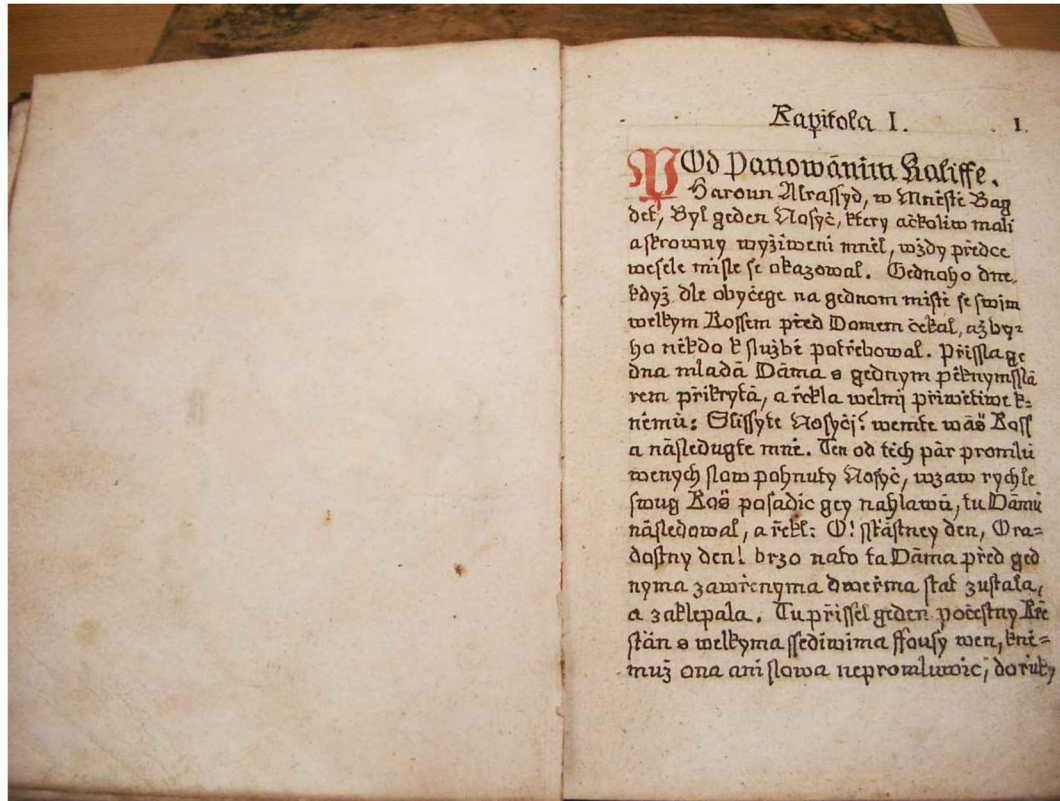 Kapitola I. 1.
POd Panowánim Kaliffe.
Haroun Alrassyd, w Mněstě Bag
det, Byl geden Nosyč, ktery ačkoliw mali
a skrowny wyžiweni mněl, wždy předce
wesele misle se okazowal. Gednoho dne,
když dle obyčege na gednom mistě se swim
welkym Kossem před Domem čekal, až by-
ho někdo k službě potřebowal. Přissla ge
dna mladá Dáma s gednym pěknym sslá
rem přikrytá, a řekla welmj přiwětiwe k-
němu: Slissyte Nosyči! wemte wáš Koss
a následugte mně. Ten od těch pár promlu
wenych slow pohnuty Nosyč, wzaw rychle
swug Koš posadic gey na hlawu, tu Dámu
následowal, a řekl: O! sstástney den, O ra-
dostny den! brzo nato ta Dáma před ged
nyma zawřenyma dweřma stat zustala,
a zaklepala. Tu přissel geden počestny Kře
stán s welkyma ssediwima ffousy wen, kně-
muž ona ani slowa nepromluwic, do ruky